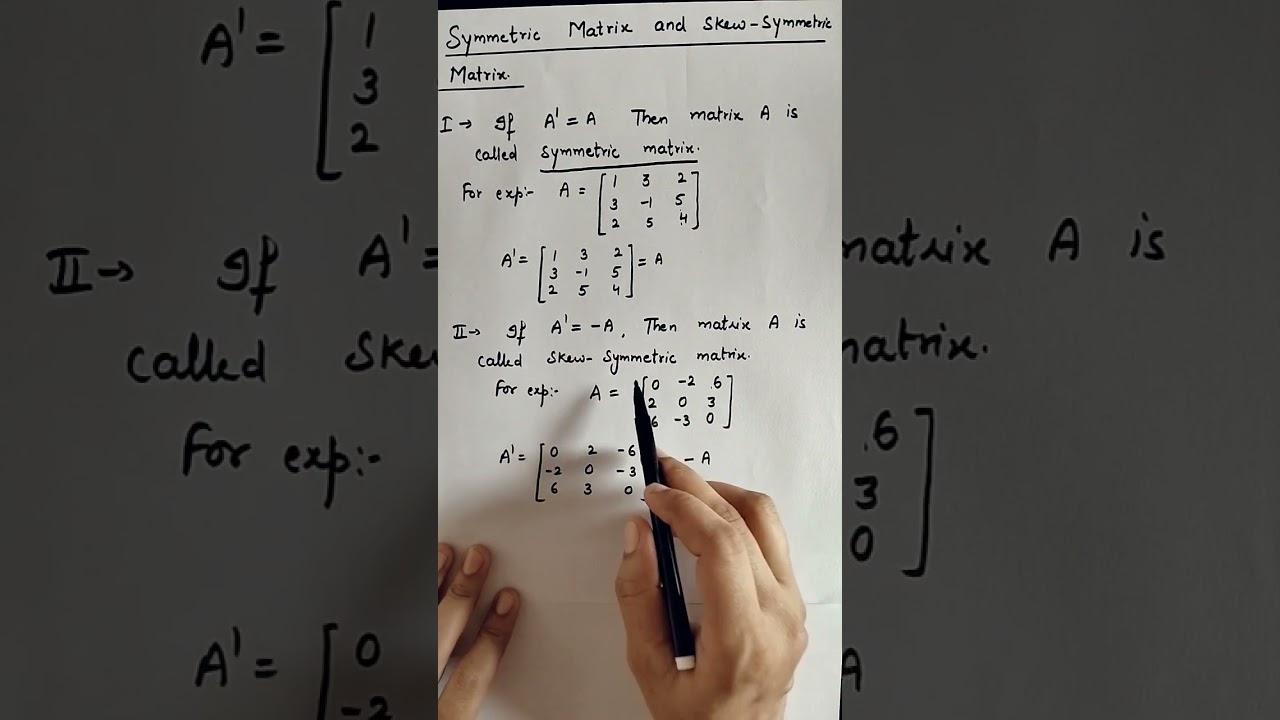 Symmetric Matrix and Skew-Symmetric
Matrix.
I → If A' = A Then matrix A is
called symmetric matrix.
For exp:- A = [1 3 2
3 -1 5
2 5 4]
A' = [1 3 2
3 -1 5
2 5 4] = A
II → If A' = -A, Then matrix A is
called Skew-Symmetric matrix.
For exp:- A = [0 -2 6
2 0 3
6 -3 0]
A' = [0 2 -6
-2 0 -3
6 3 0] - A